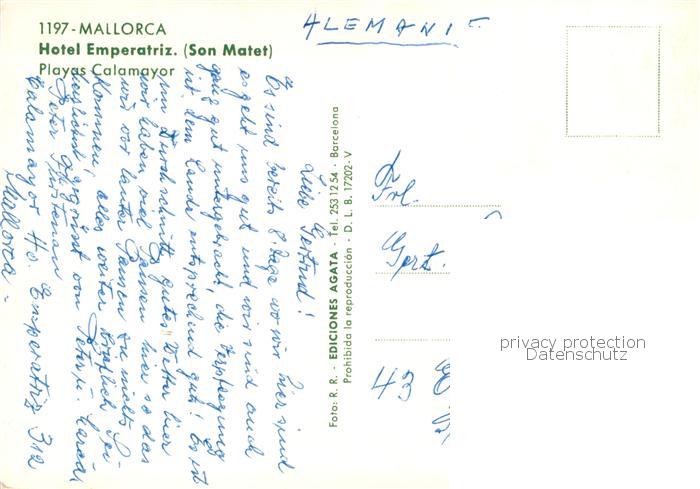 1197 - MALLORCA
Hotel Emperatriz. (Son Matet)
Playas Calamayor
ALEMANIE
Liebe Gertrud!
Es sind bereits 8 Tage wo wir hier sind
es geht uns gut und wir sind auch
ganz gut untergebracht, die Verpflegung
ist dem Lande entsprechend gut! Es ist
im Durchschnitt gutes Wetter hier
wir haben viel hier so das
wir vor lauter zu nichts
kommen, alles weiter brieflich
herzlichst gegrüsst von Peter u.
Peter
Calamayor Ho. Emperatriz 312
Mallorca -
Foto: R. R. - EDICIONES AGATA - Tel. 253 12 54 - Barcelona
Prohibida la reproducción - D. L. B. 17202-V
Frl.
Gert.
43
privacy protection
Datenschutz